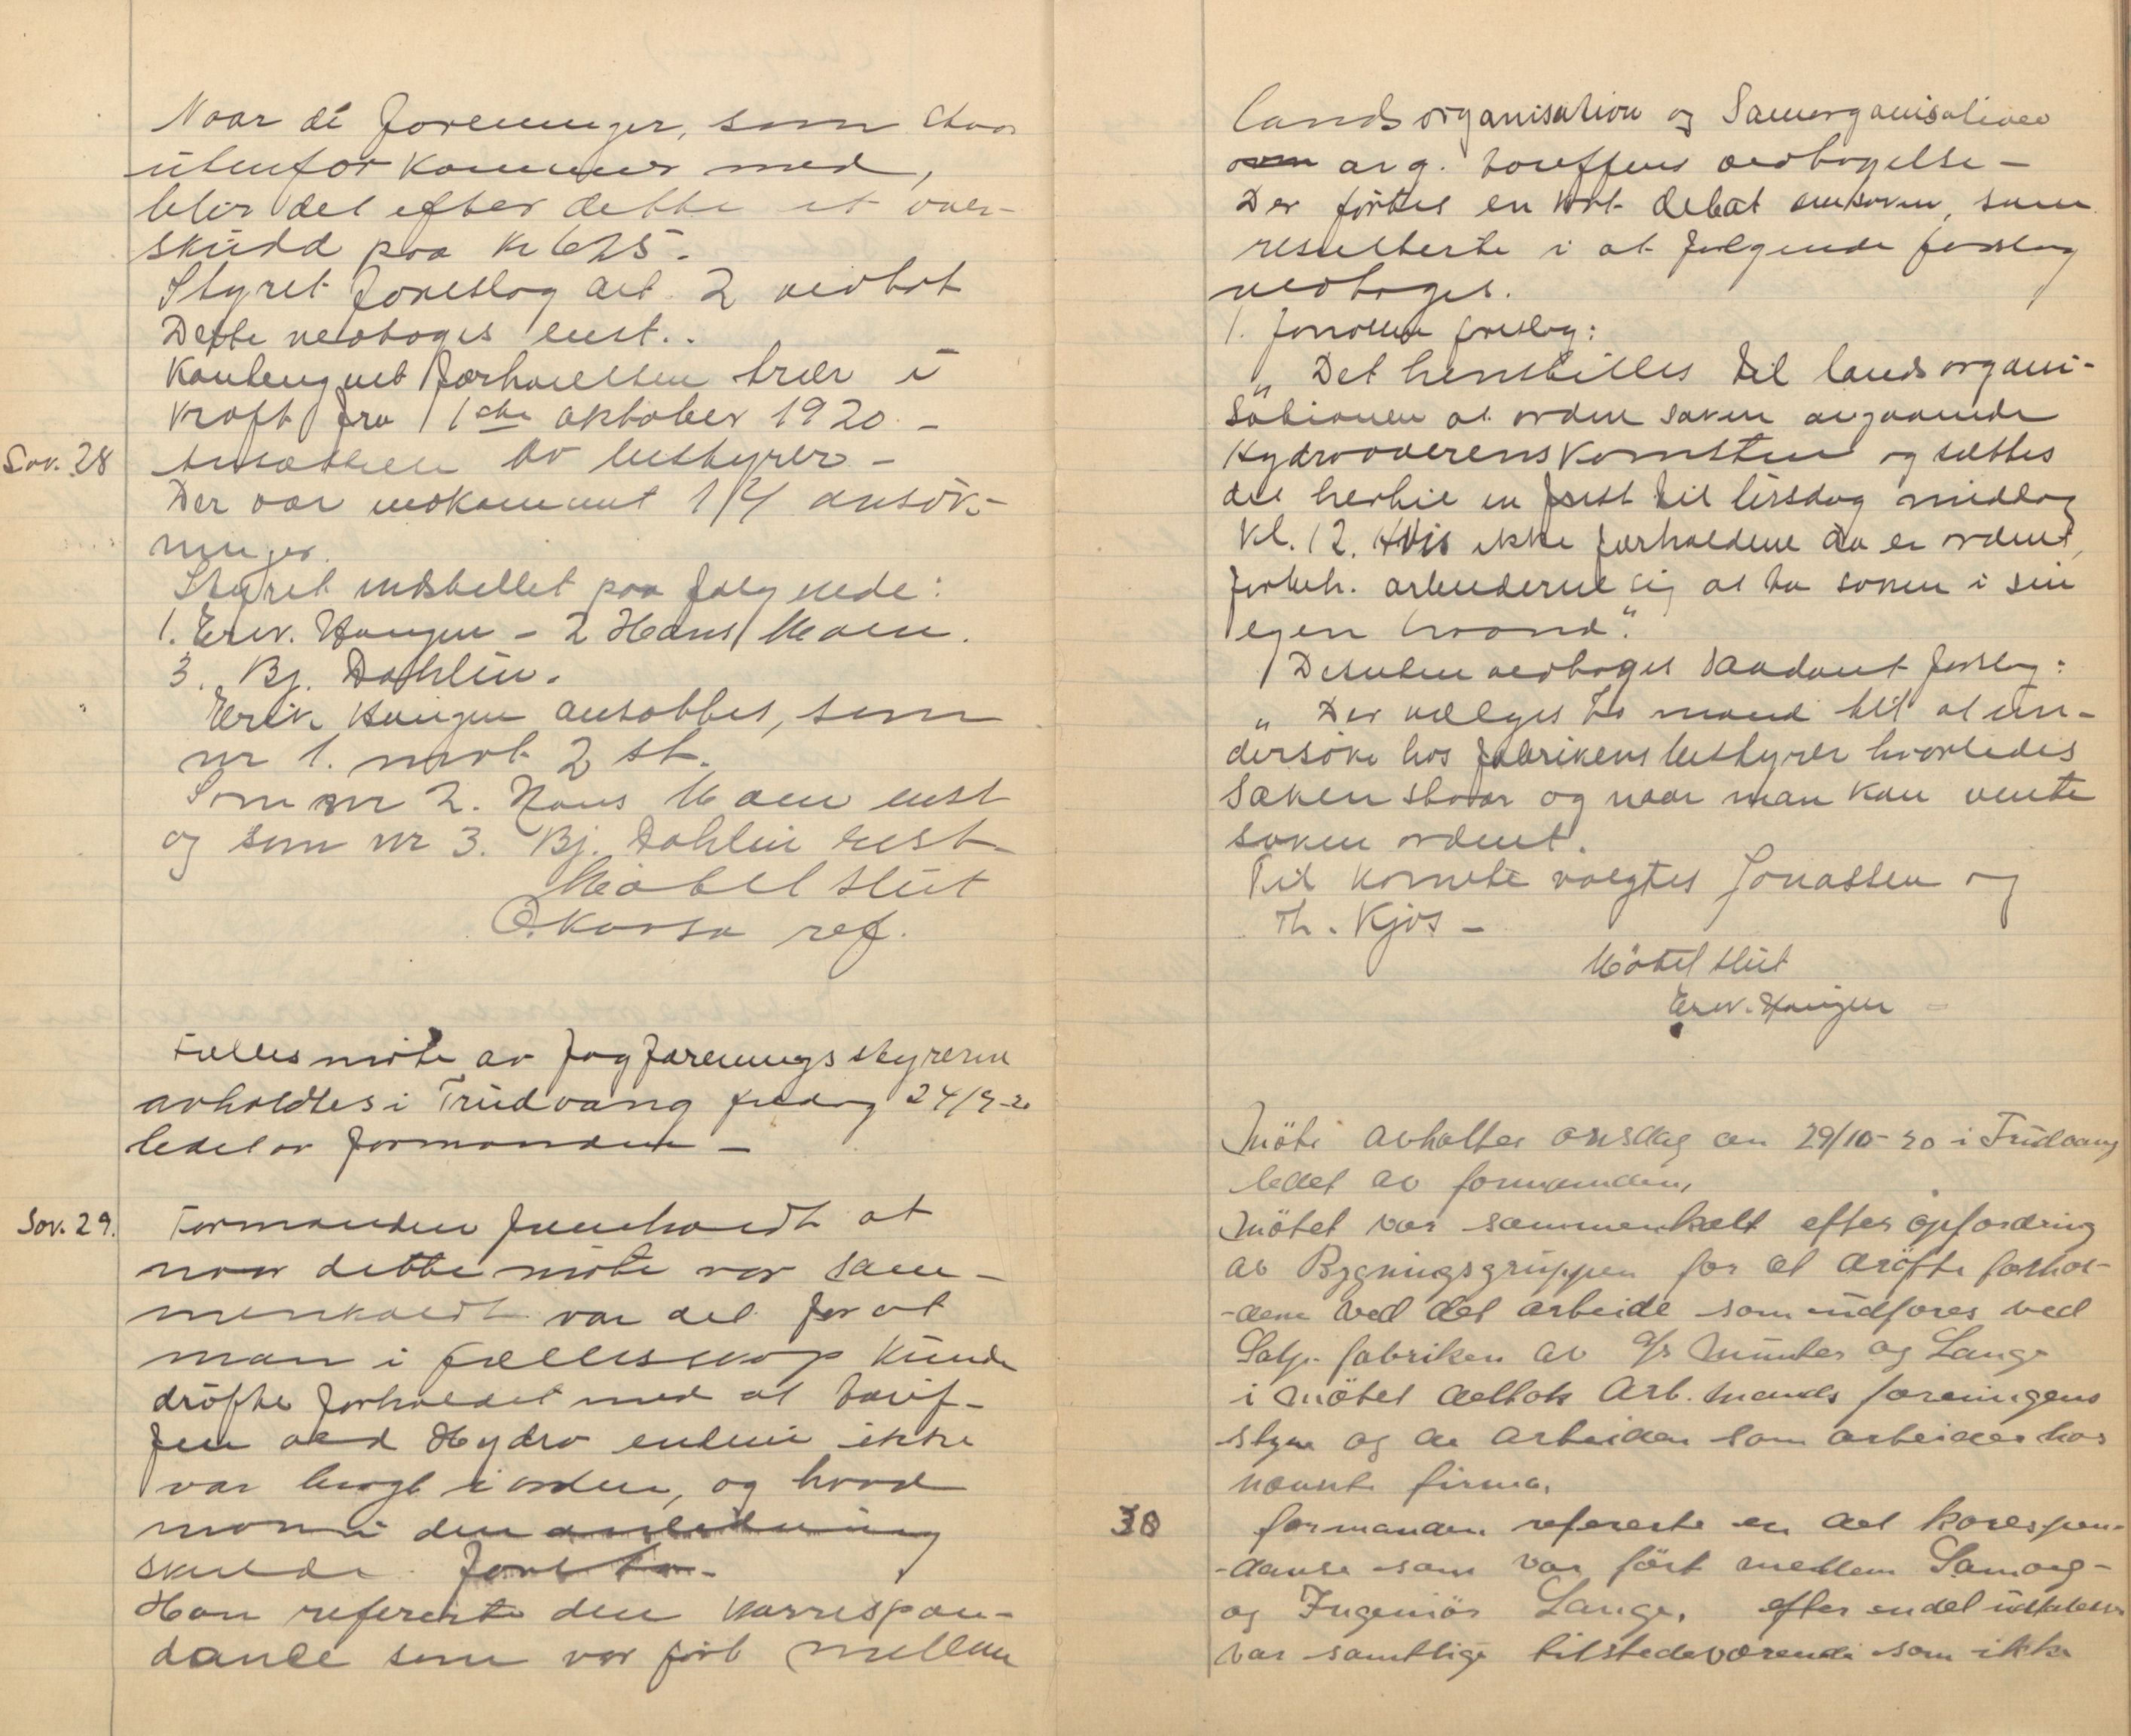 Naar de foreninger, som staar
utenfor kommer med,
blir det efter dette et over-
skudd paa kr 625.
Styret foreslog alt. 2 vedtat
Dette vedtoges enst..
Kontengnet forhøielsen træer i
kraft fra 1ste oktober 1920. –
Sov. 28 Ansættelse av bestyrer –
Der var indkommet 14 ansøk-
ninger.
Styret indstillet paa følgende:
1. Erik. Haugen – 2 Hans Moen.
3. Bj. Dahlin.
Erik Haugen ansattes, som
nr 1. mot 2 st.
Som nr 2. Hans Moen enst
og som nr 3. Bj. Dahlin enst.
Mötet slut
O. Korsa ref.
Fællesmöte av fagforeningsstyrerne
avholdtes i Trudvang fredag 24/9-20
ledet av formanden –
Sov. 29. Formanden fremholdt at
naar dette möte var sam-
menkaldt var det for at
man i fællesskap kunde
dröfte forholdet med at tarif-
fen ved Hydro endnu ikke
var bragt i orden, og hvad
man i den anledning
skulde foreta.
Han refererte den korrespon-
dance som var fört mellem
landsorganisation og Samorganisationen
om ang. tariffens vedtagelse –
Der förtes en kort debat om saken, som
resulterte i at følgende forslag
vedtoges.
1. Jonassen foreslog:
„ Det henstilles til landsorgani-
sationen at ordne saken angaaende
Hydrooverenskomsten og sættes
det hertil en frist til tirsdag middag
kl. 12. Hvis ikke forholdene da er ordnet,
forbeh. arbeiderne sig at ta saken i sin
egen haand."
Desuten vedtoges saadant forslag:
„ Der vælges to mand til at un-
dersöke hos fabrikens bestyrer hvorledes
saken staar og naar man kan vente
saken ordnet.
Til komite valgtes Jonassen og
Th. Kjos –
Mötet slut
Erik. Haugen
Möte avholtes onsdag den 29/10-20 i Trudvang
ledet av formanden,
Mötet var sammenkalt efter opfordring
av Bygningsgruppen for at dröfte forhol-
-dene ved det arbeide som utføres ved
Salp. fabriken av A/s Münter og Lange
i Mötet deltok Arb. mands foreningens
styre og de Arbeider som arbeider hos
nævnte firma,
30 formanden refererte en del korespon-
-danse som var fört mellem Samorg-
og Ingeniör Lange. efter endel uttalelser
var samtlige tilstedeværende som ikke